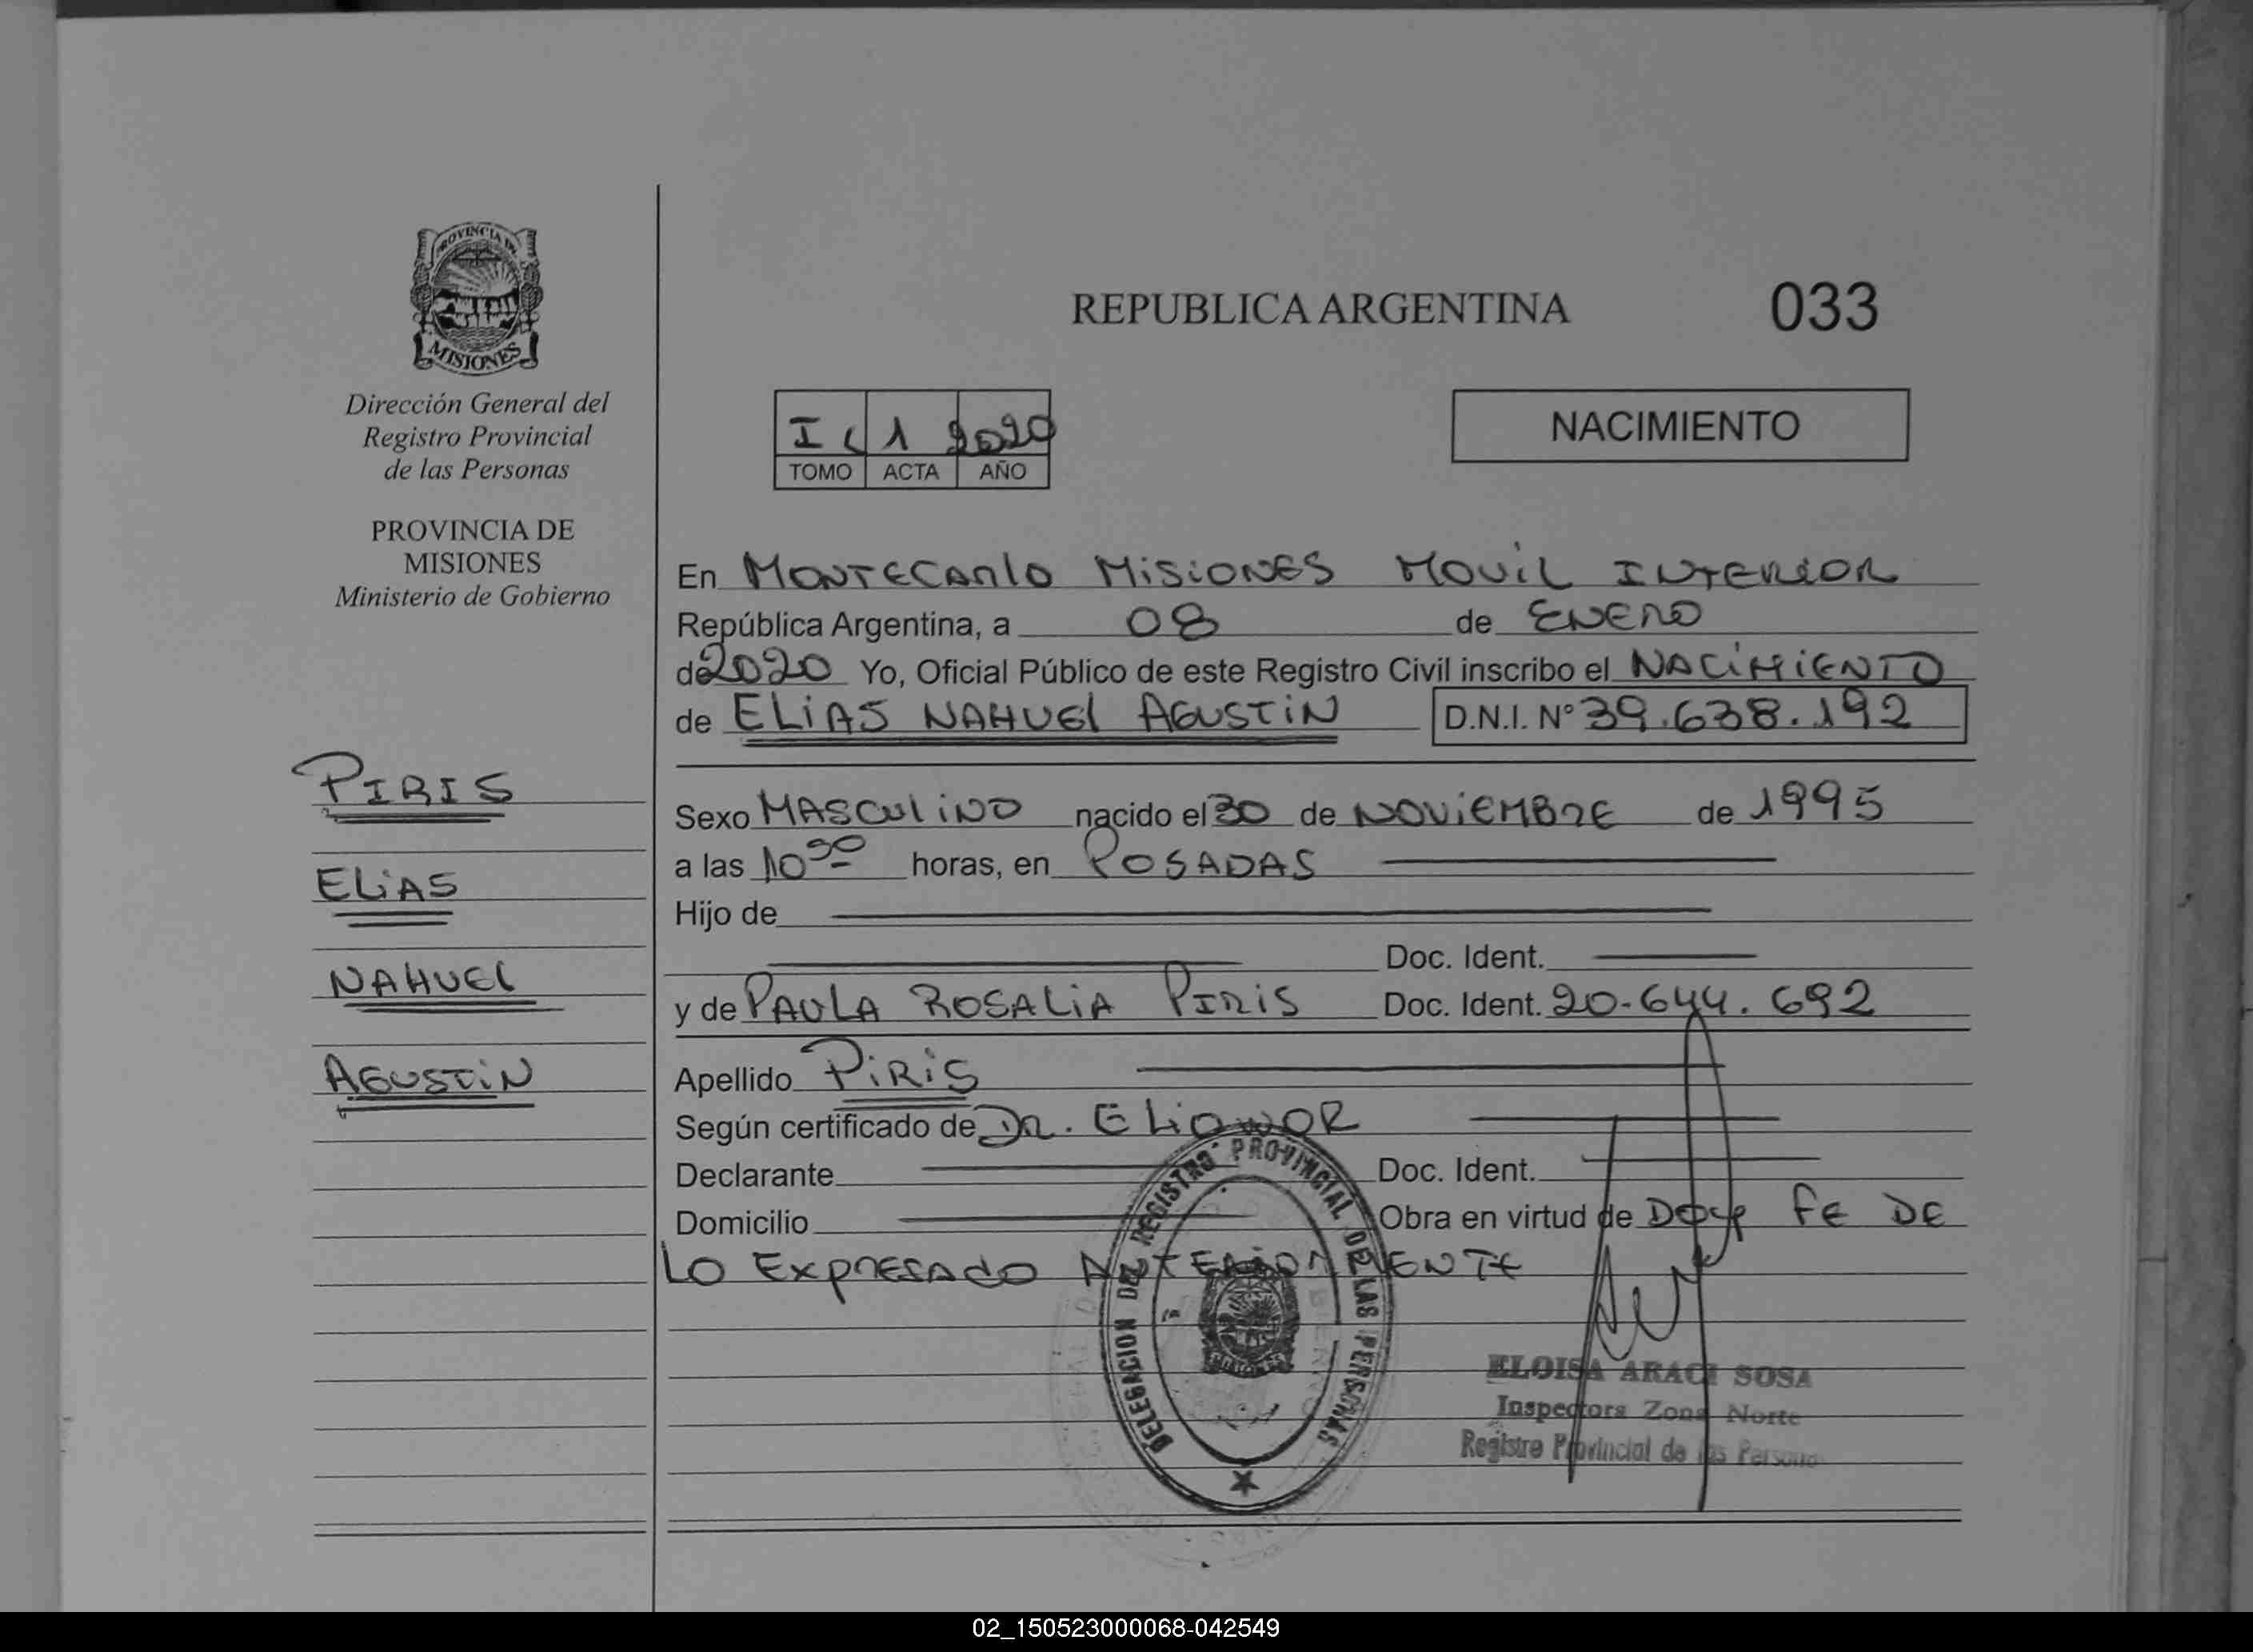 PROVINCIA DE
MISIONES
Dirección General del
Registro Provincial
de las Personas
PROVINCIA DE
MISIONES
Ministerio de Gobierno
PIRIS
ELIAS
NAHUEL
AGUSTIN
REPUBLICA ARGENTINA
033
I 1 2020
TOMO ACTA AÑO
NACIMIENTO
En MONTECARLO MISIONES MOVIL INTERIOR
República Argentina, a 08 de ENERO
de 2020 Yo, Oficial Público de este Registro Civil inscribo el NACIMIENTO
de ELIAS NAHUEL AGUSTIN D.N.I. N° 39.638.192
Sexo MASCULINO nacido el 30 de NOVIEMBRE de 1995
a las 10 horas, en POSADAS
Hijo de
Doc. Ident.
y de PAULA ROSALIA PIRIS Doc. Ident. 20.644.692
Apellido PIRIS
Según certificado de DR. ELIONOR
Declarante Doc. Ident.
Domicilio Obra en virtud de DOY FE DE
LO EXPRESADO ANTERIORMENTE
DELEGACION DEL REGISTRO PROVINCIAL DE LAS PERSONAS
ELOISA ARACI SOSA
Inspectora Zona Norte
Registro Provincial de las Personas
02_150523000068-042549